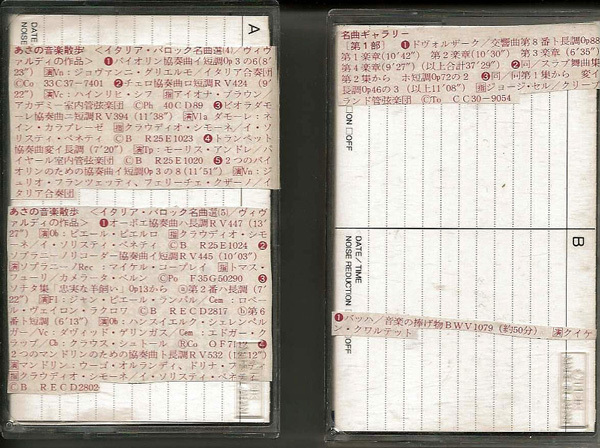 A
DATE
NOISE
あさの音楽散歩 <イタリア・バロック名曲選(4)/ヴィヴ
ァルディの作品> ❶バイオリン協奏曲イ短調Op3の6(8′
23″) 演Vn:ジョヴァンニ・グリエルモ/イタリア合奏団
ⒸCo 33C37-7401 ❷チェロ協奏曲ロ短調RV424 (9′
22″) 演Vc:ハインリヒ・シフ 指アイオナ・ブラウン/
アカデミー室内管弦楽団 ⒸPh 40CD89 ❸ビオラダモ
ーレ協奏曲ニ短調RV394(11′38″) 演Vlaダモーレ:ネ
イン・カラブレーゼ 指クラウディオ・シモーネ/イ・ソ
リスティ・ベネティ ⒸB R25E1023 ❹トランペット
協奏曲変イ長調(7′20″) 演Tp:モーリス・アンドレ/パ
イヤール室内管弦楽団 ⒸB R25E1020 ❺2つのバイ
オリンのための協奏曲イ短調Op3の8(11′51″) 演Vn:ジ
ュリオ・フランツェッティ、フェリーチェ・クザーノ/イ
タリア合奏団
あさの音楽散歩 <イタリア・バロック名曲選(5) ヴィヴ
ァルディの作品> ❶オーボエ協奏曲ハ長調RV447(13′
27″) 演Ob:ピエール・ピエルロ 指クラウディオ・シモ
ーネ/イ・ソリスティ・ベネティ ⒸB R25E1024 ❷
ソプラニーノリコーダー協奏曲イ短調RV445(10′03″)
演ソプラニーノ/Rec:マイケル・コープレイ 指トマス・
フューリ/カメラータ・ベルン ⒸPo F35G50290 ❸
ソナタ集「忠実な羊飼い」Op13から ⓐ第2番ハ長調(7′
21″) 演Fl:ジャン・ピエール・ランパル/Cem:ロベー
ル・ヴェイロン・ラクロワ ⒸB RECD2817 ⓑ第6
番ト短調(6′13″) 演Ob:ハンスイエルク・シェレンベル
ガー/Vc:ダヴィッド・ゲリンガス/Cem:エドガー・ク
ラップ/Cb:クラウス・シュトール ⒸO OF7112 ❹
2つのマンドリンのための協奏曲ト長調RV532(12′12″)
演マンドリン:ウーゴ・オルランディ、ドリナ・フラティ
指クラウディオ・シモーネ/イ・ソリスティ・ベネティ
ⒸB RECD2802
名曲ギャラリー
〔第1部〕 ❶ドヴォルザーク/交響曲第8番ト長調Op88
第1楽章(10′42″) 第2楽章(10′30″) 第3楽章(6′35″)
第4楽章(9′27″)(以上合計37′29″) ❷同/スラブ舞曲集
第2集から ホ短調Op72の2 ❸同/同第1集から 変イ
長調Op46の3 (以上11′08″) 指ジョージ・セル/クリーブ
ランド管弦楽団 ⒸTo CC30-9054
ON OFF
B
DATE/TIME
NOISE REDUCTION
❶バッハ/音楽の捧げ物BWV1079(約50分) 演クイケ
ン・クヮルテット
OFF